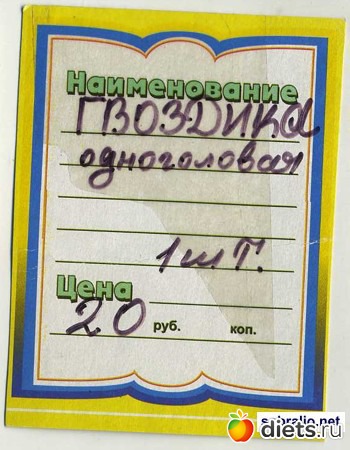 Наименование
ГВОЗДИКА
одноголовая
1 шт.
Цена
20 руб. коп.
sabralis.net
diets.ru